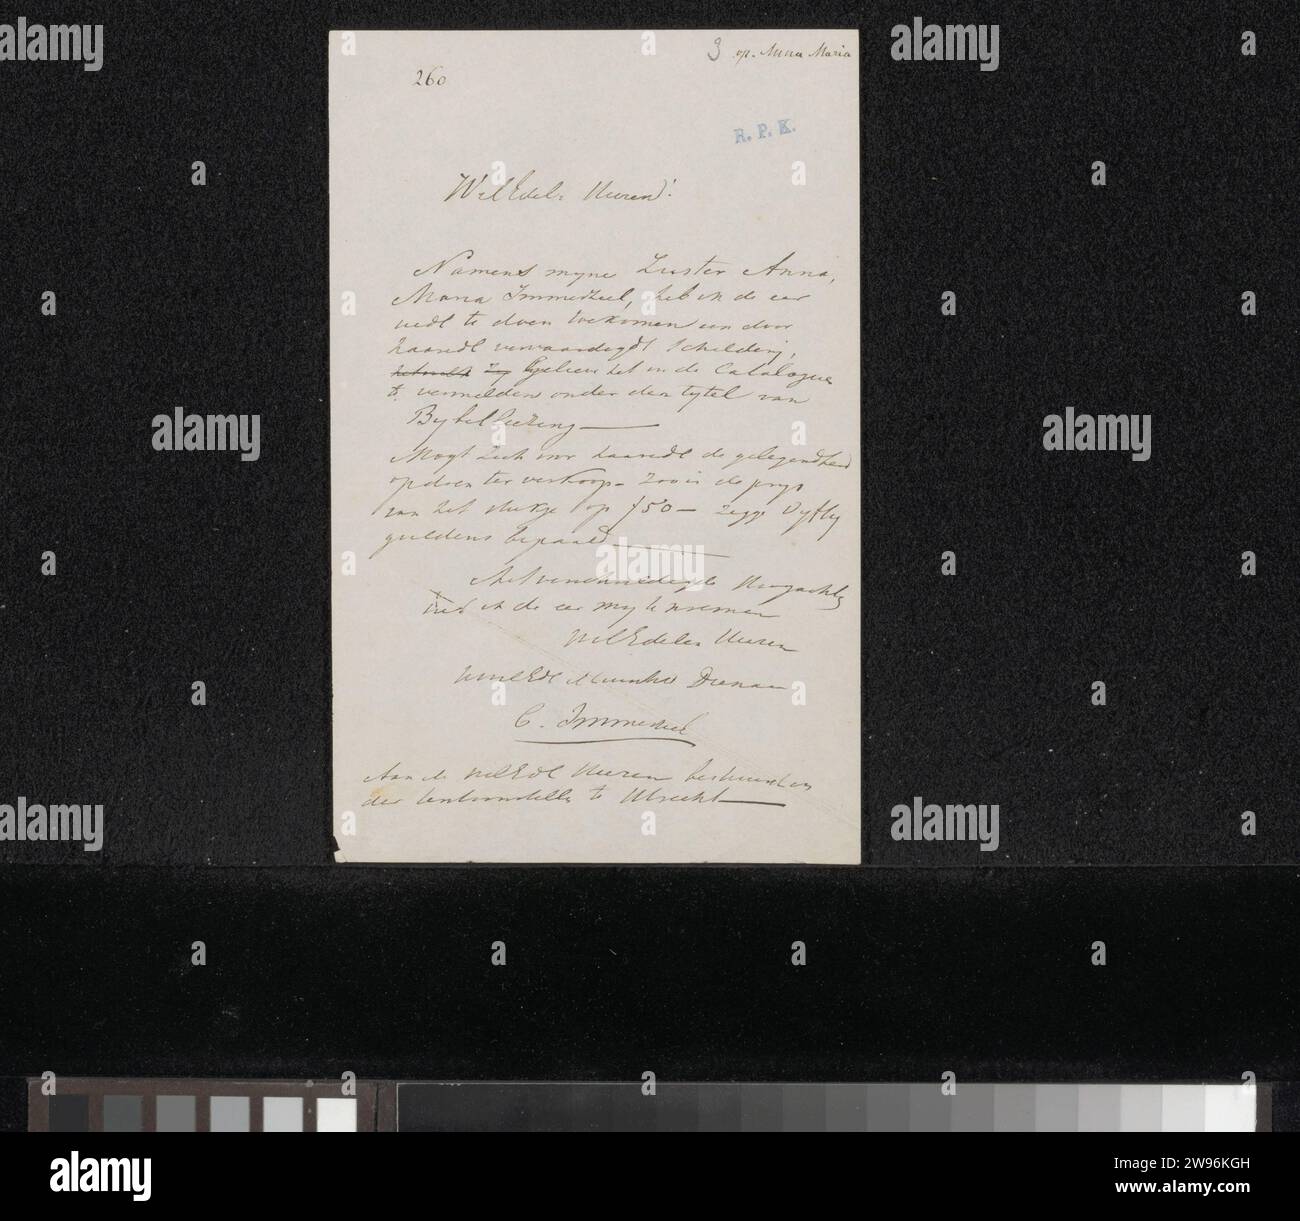 3 op. Anna Maria
260
R. P. K.
WelEdele Heeren!
Namens myne Zuster Anna,
Maria Immerzeel, heb ik de eer
uedl te doen toekomen een door
haaredl vervaardigdt schildery,
Gelieve het in de Catalogus
te vermelden onder den tytel van
Bybellezing
Mogt zich voor haaredl de gelegendheid
opdoen ter verkoop - zoo is de prys
van het stukje op f50 - zegge Vyftig
guldens bepaald
Met verschuldigde Hoogachting
heb ik de eer my te noemen
WelEdele Heeren
UwelEdl Dienaar
C. Immerzeel
Aan de WelEdl Heeren bestuurders
der tentoonstelling te Utrecht
alamy
Image ID: 2W96KGH
www.alamy.com